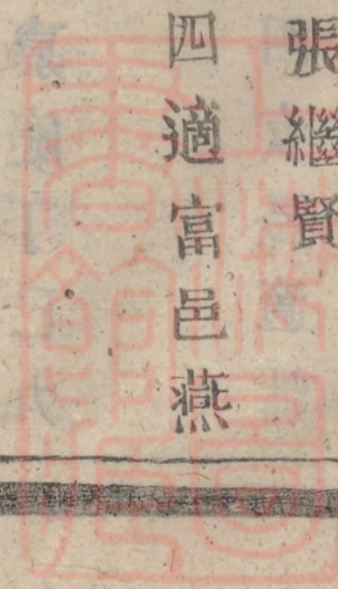 張繼賢
四適富邑燕